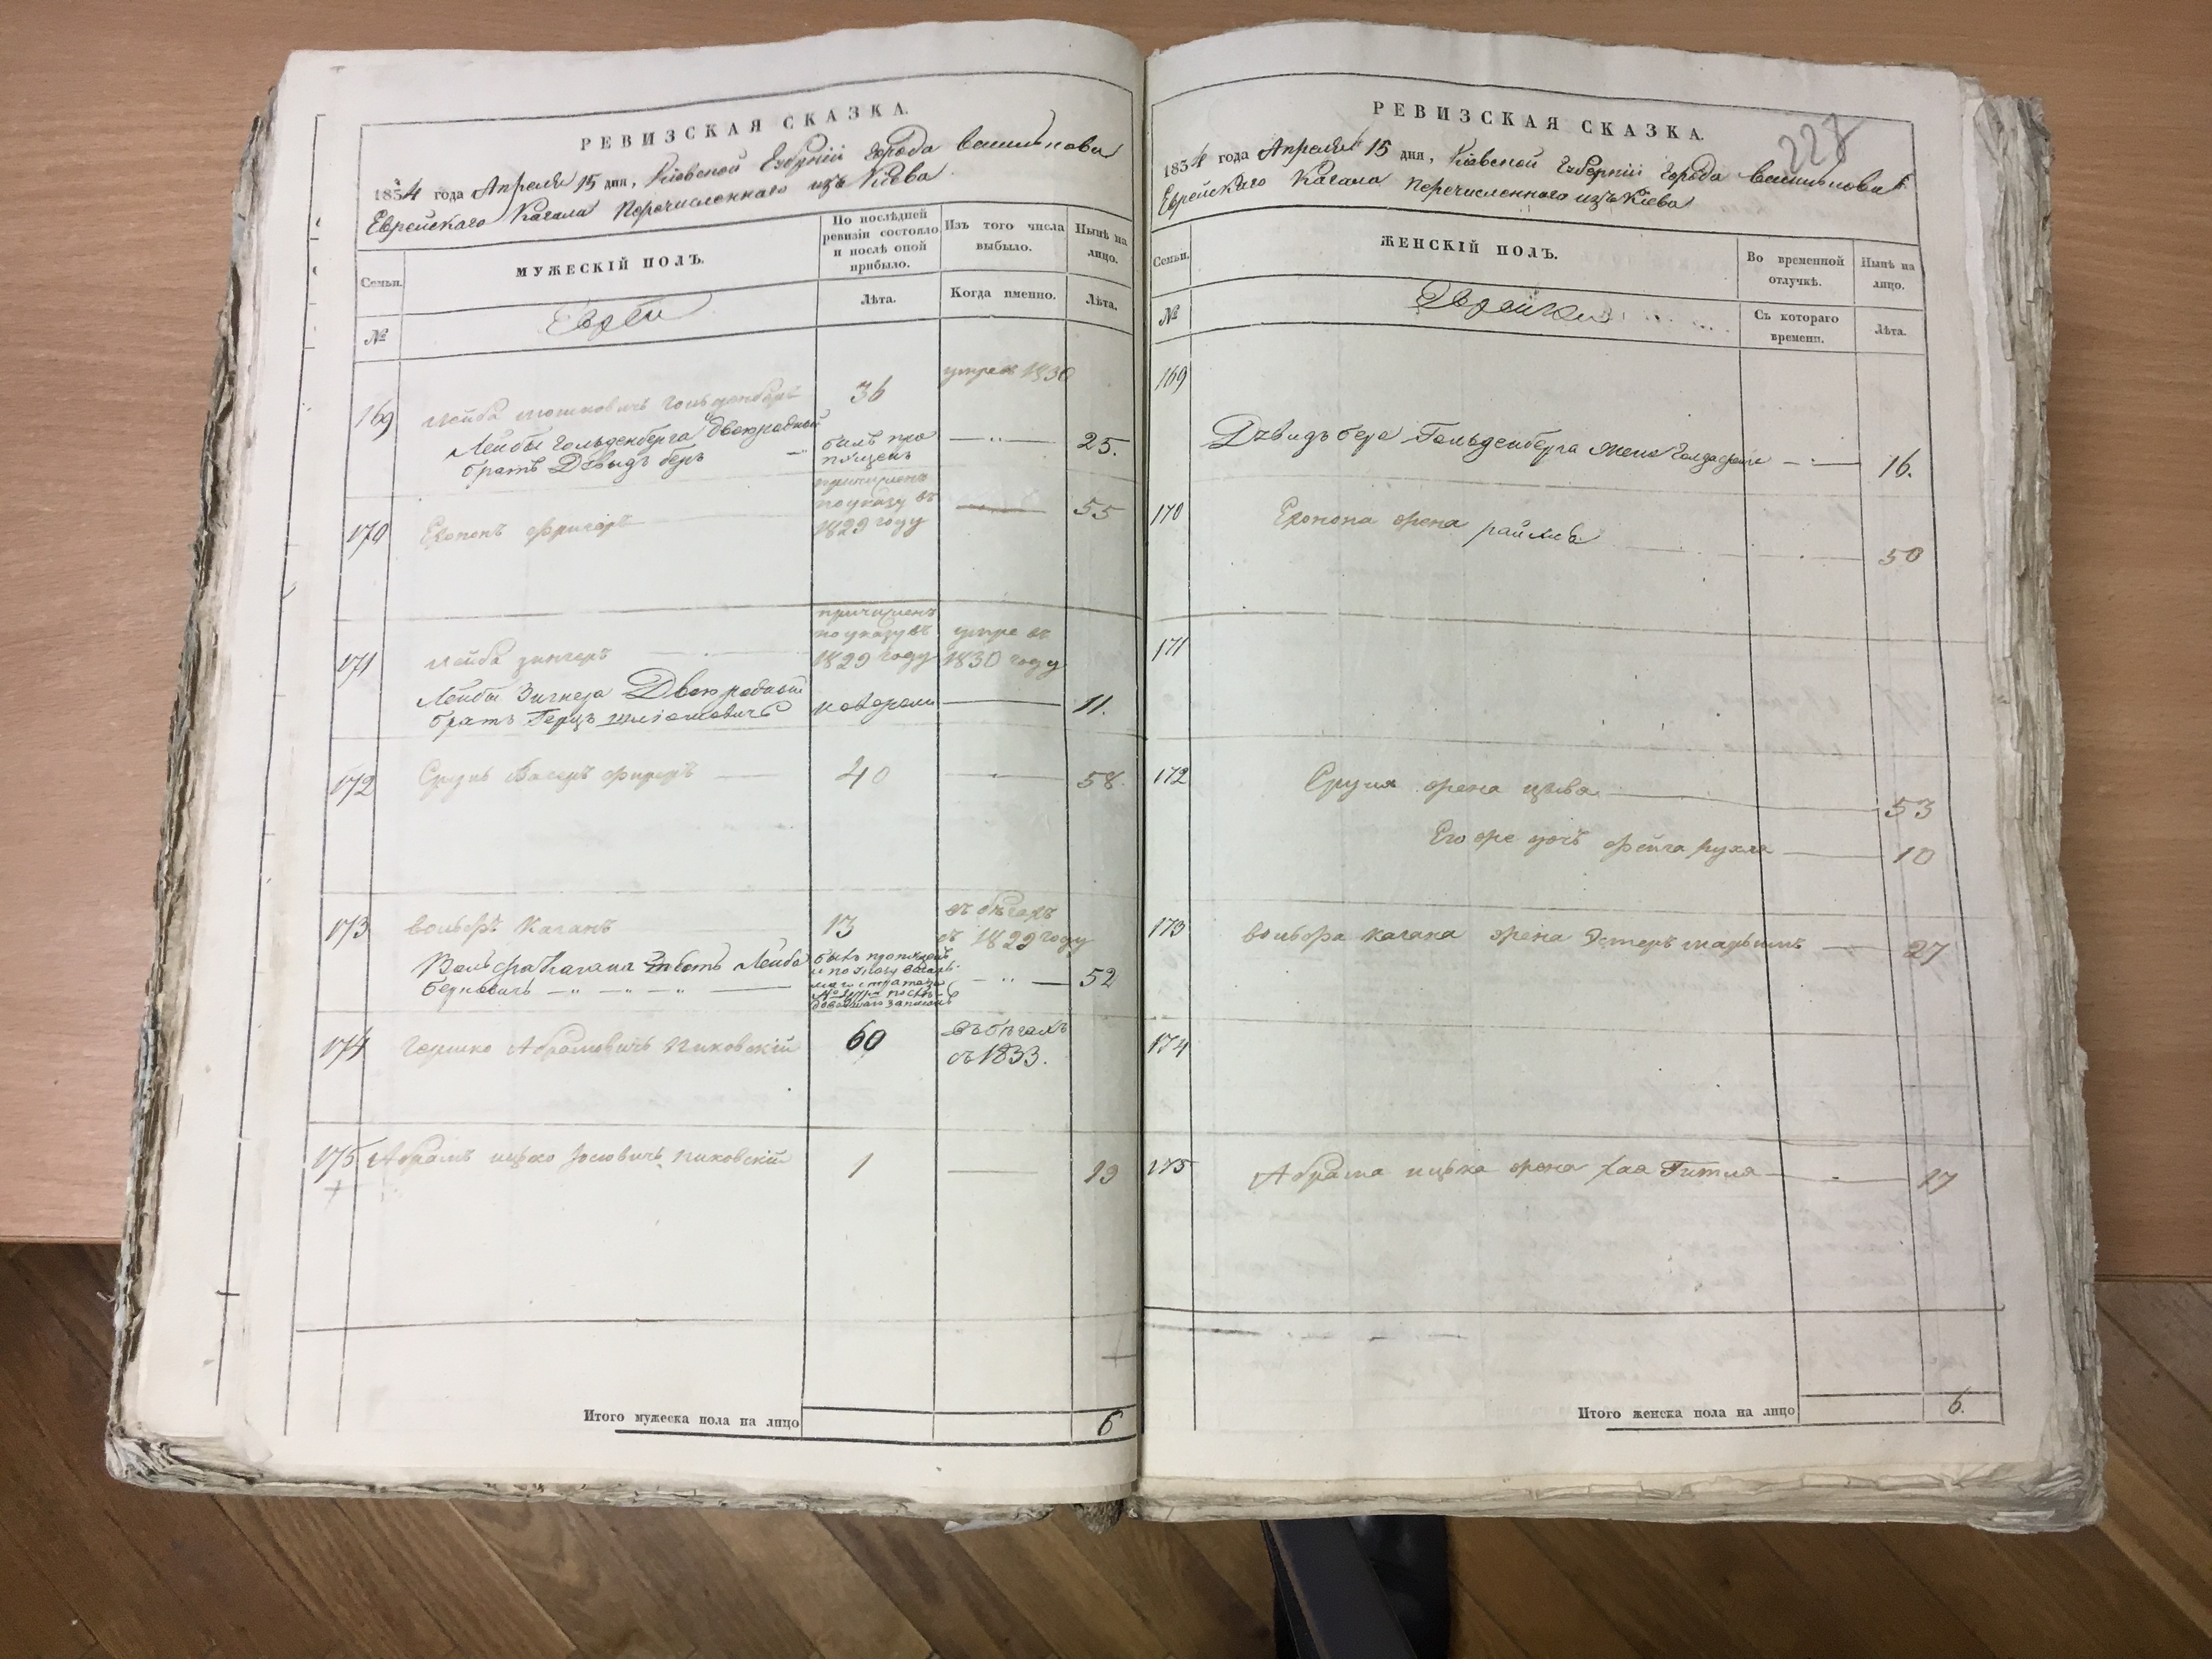 РЕВИЗСКАЯ СКАЗКА.
1834 года Апреля 15 дня, Кіевской Губерніи города Василькова
Еврейскаго Кагала Перечисленнаго изъ Кіева
Семьи.
МУЖЕСКІЙ ПОЛЪ.
По послѣдней
ревизіи состояло
и послѣ оной
прибыло.
Изъ того числа
выбыло.
Нынѣ на
лицо.
№
Евреи
Лѣта.
Когда именно.
Лѣта.
169
Лейба Мошковичъ Гольденберъ
36
умре въ 1830
Лейбы Гольденберга двоюродный
братъ Дăвыдъ беръ
былъ про
пущенъ
25.
170
причисленъ
по указу въ
1829 году
55
171
Лейба зингеръ
причисленъ
по указу въ
1829 году
умре въ
1830 году
Лейбы Зигнера Двоюродный
братъ Герцъ
11.
172
Сруль
40
58.
173
вольфъ Каганъ
13
въ бѣгахъ
съ 1829 году
Вольфа Кагана зять Лейба
Берковичъ
былъ пропущенъ
и по указу
52
174
Гершко Абрамовичъ Пиковскій
60
Въ бѣгахъ
съ 1833.
175
Абрамъ ицько Іосіовичъ Пиковскій
1
19
Итого мужеска пола на лицо
6
РЕВИЗСКАЯ СКАЗКА.
227
1834 года Апреля 15 дня, Кіевской Губерніи города Василькова
Еврейскаго Кагала перечисленнаго изъ Кіева
Семьи.
ЖЕНСКІЙ ПОЛЪ.
Во временной
отлучкѣ.
Нынѣ на
лицо.
№
Еврейки
Съ котораго
времени.
Лѣта.
169
Давидъ бера Гольденберга жена
16.
170
жена райзля
50
171
172
Сруля жена цыва
53
Его же дочь фейга рухля
10
173
вольфа кагана жена Эстеръ
27
174
175
Абрама ицька жена хая Гитля
17
Итого женска пола на лицо
6.